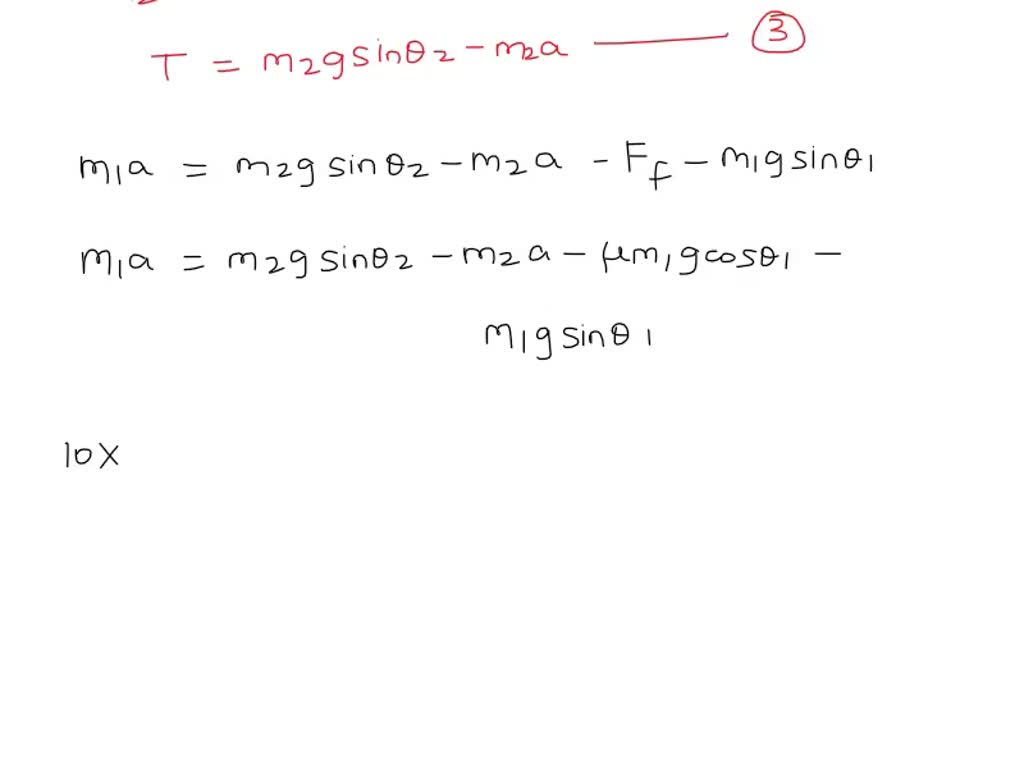 T = m₂gsinθ₂ - m₂a ——— ③
m₁a = m₂g sinθ₂ - m₂a - F_f - m₁gsinθ₁
m₁a = m₂g sinθ₂ - m₂a - μm₁gcosθ₁ -
m₁gsinθ₁
10x